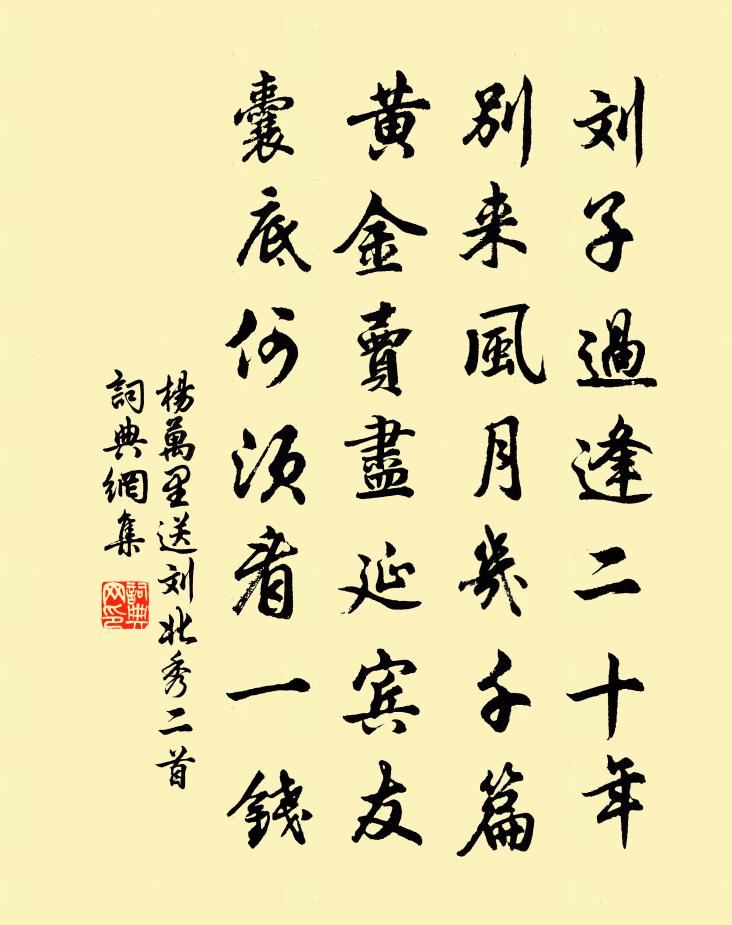 刘子過逢二十年
别来風月幾千篇
黄金賣盡延賓友
囊底何須看一錢
楊萬里送刘北秀二首
詞典網集
詞典
网印